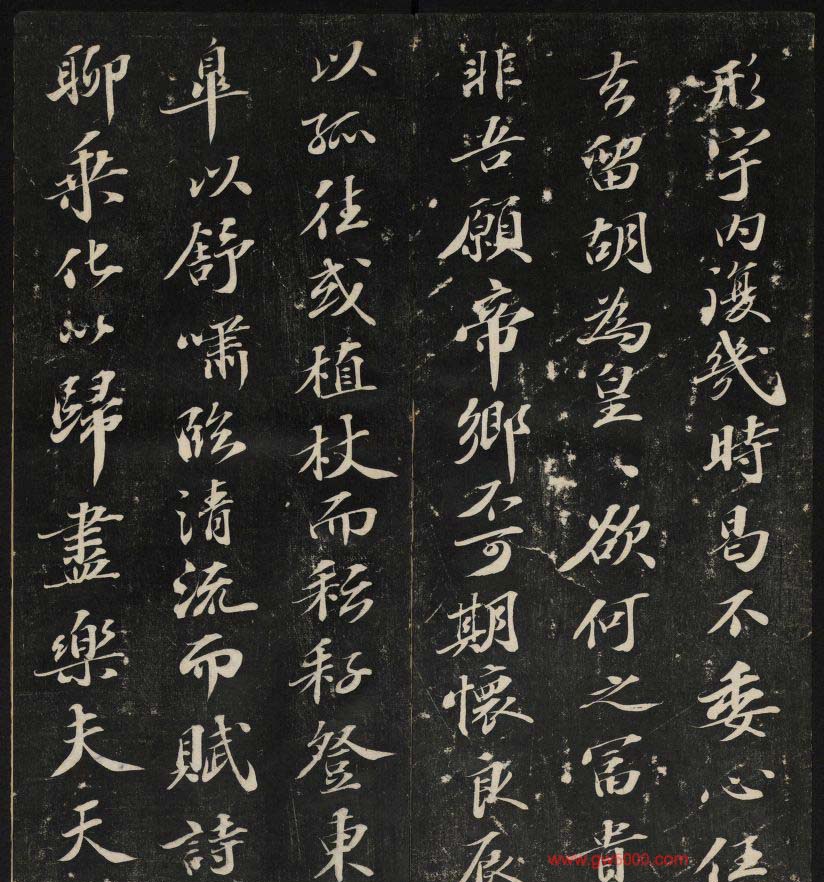 形宇内復幾時曷不委心任
去留胡為皇〻欲何之冨貴
非吾願帝鄉不可期懷良辰
以孤往或植杖而耘耔登東
皐以舒嘯臨清流而賦詩
聊乗化以歸盡樂夫天
www.gw5000.com